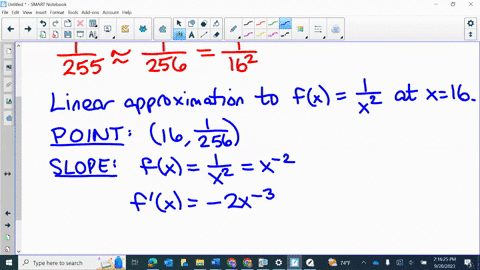 Untitled * - SMART Notebook
File Edit View Insert Format Tools Add-ons Help
1/255 ≈ 1/256 = 1/16²
Linear approximation to f(x) = 1/x² at x=16.
POINT: (16, 1/256)
SLOPE: f(x) = 1/x² = x⁻²
f'(x) = -2x⁻³
Type here to search
74°F
2:16:25 PM
9/20/2023